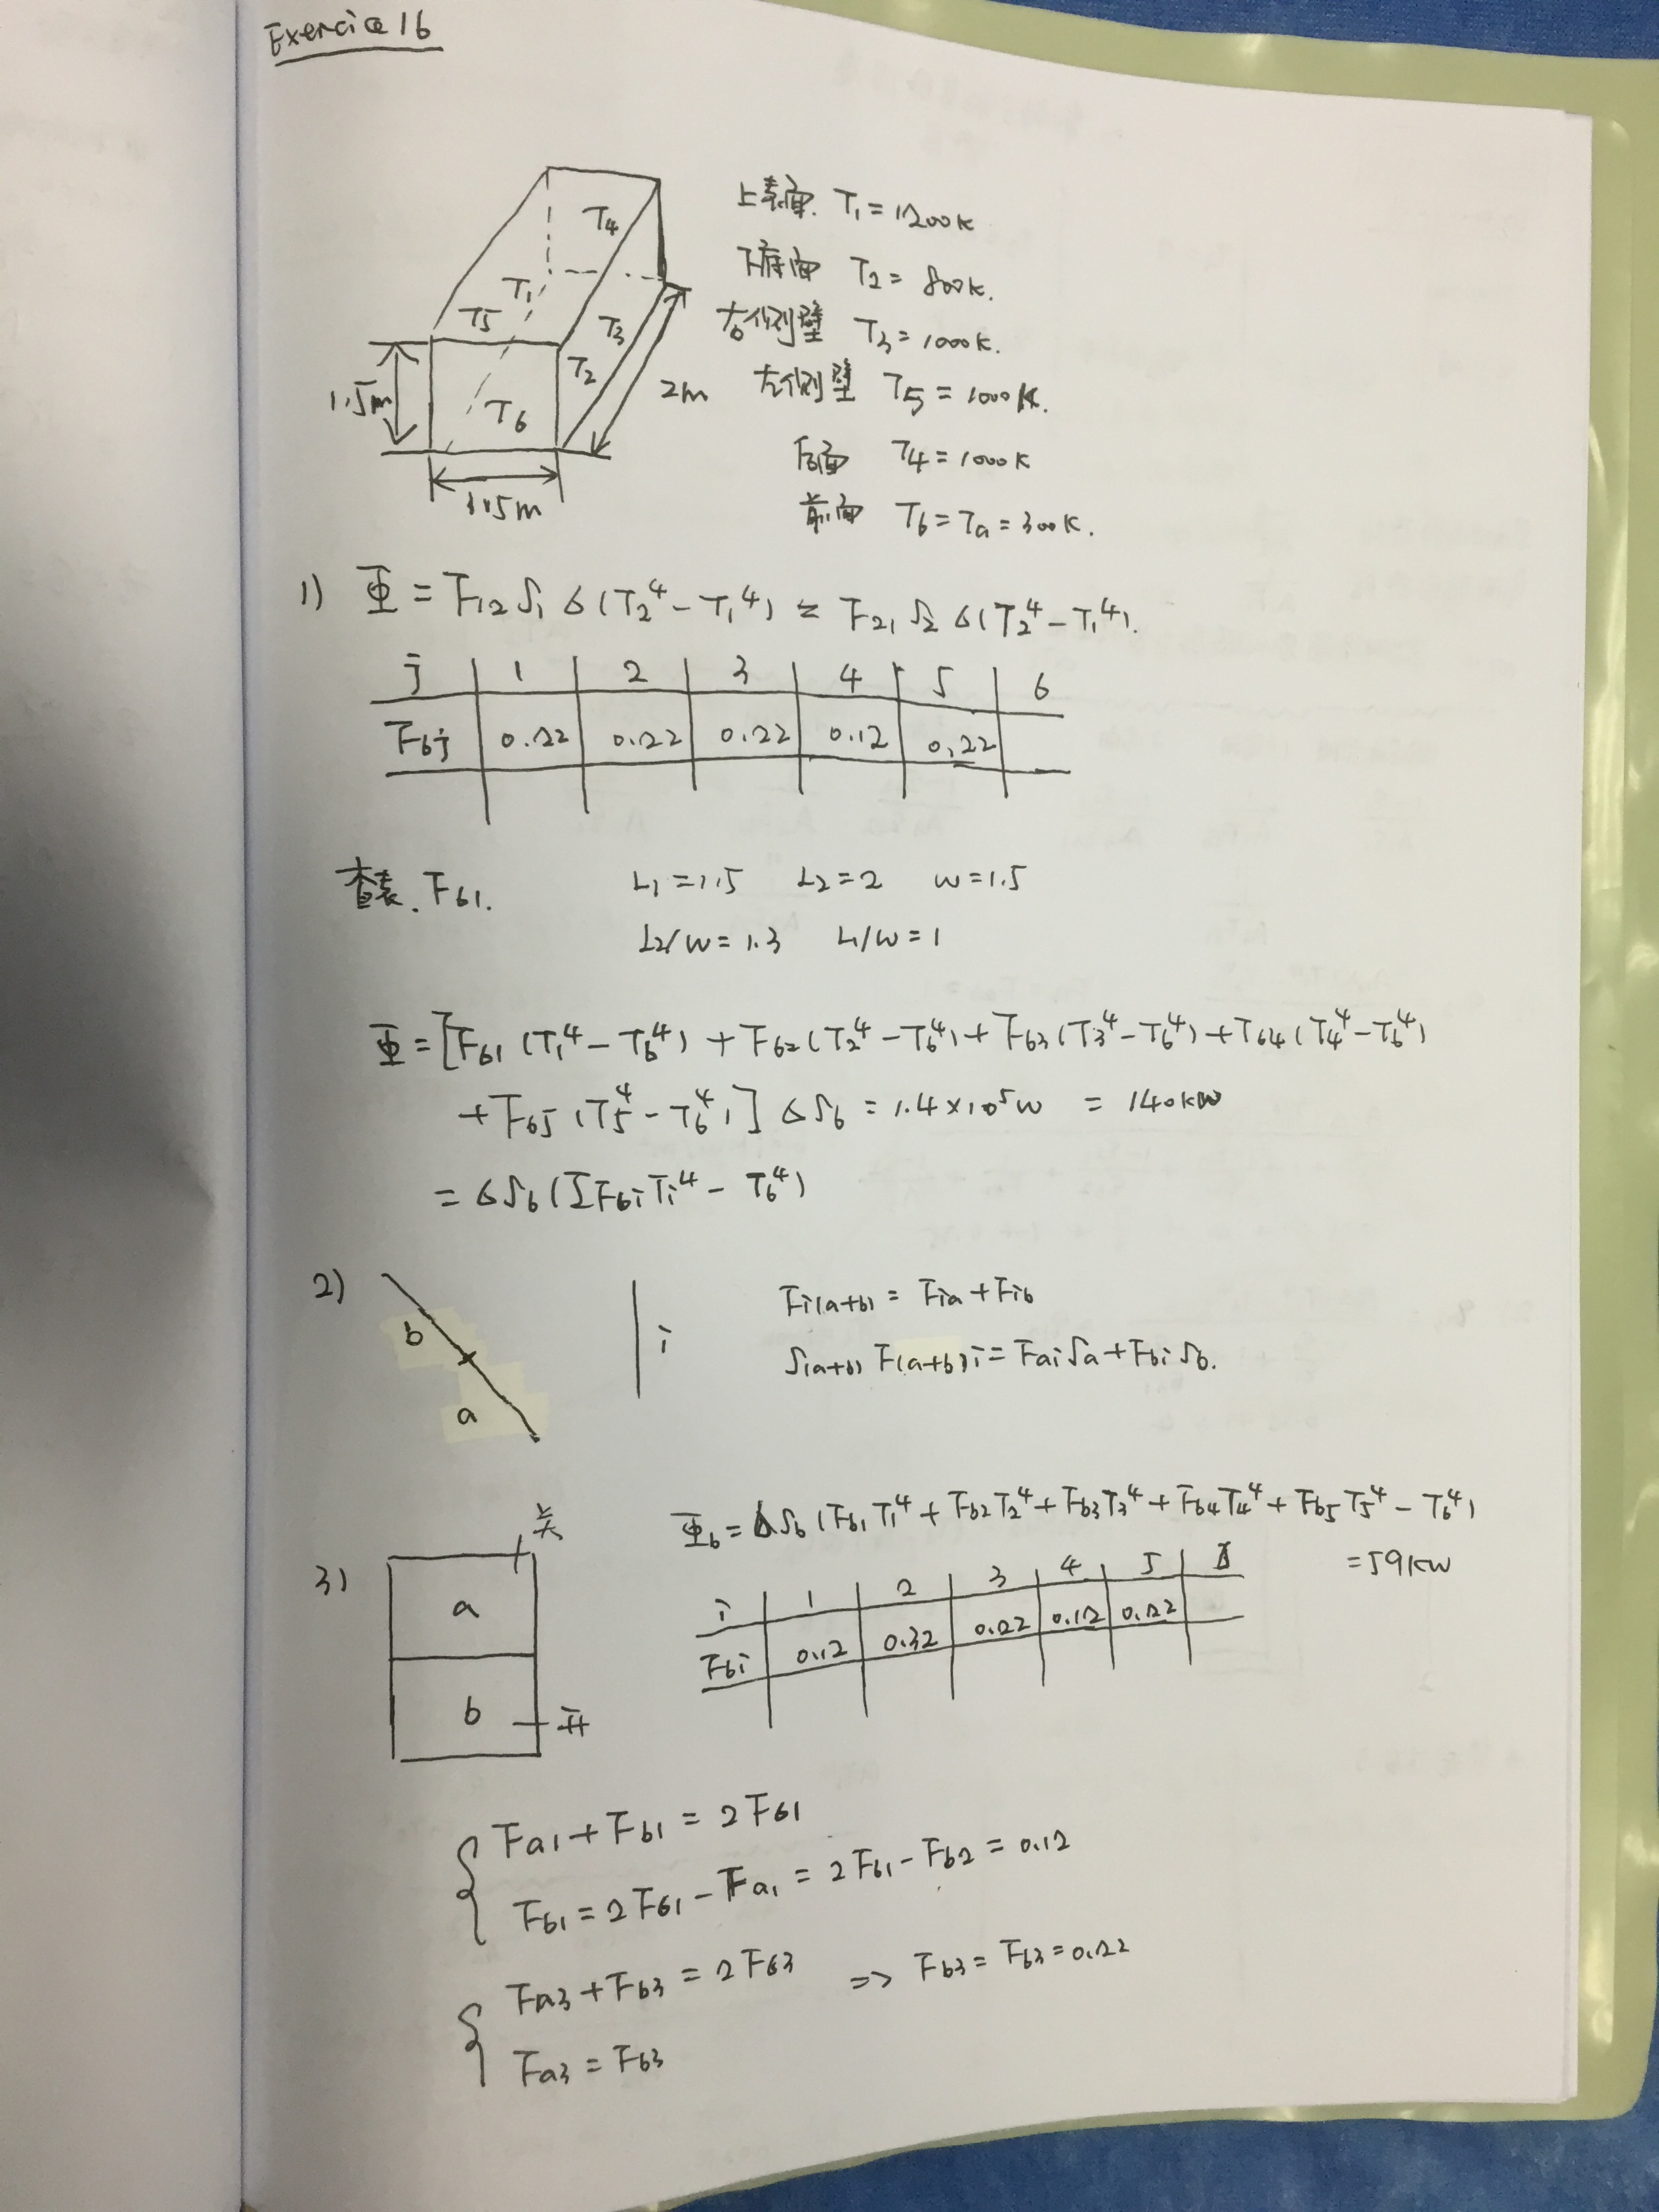 Exercice 16
T4
T1
T5
T3
T2
T6
1.5m
2m
1.5m
上表面. T1=1200K
下底面 T2=800K.
右侧壁 T3=1000K.
左侧壁 T5=1000K.
后面 T4=1000K
前面 T6=Ta=300K.
1) Φ=F12 S1 σ(T2⁴-T1⁴) = F21 S2 σ(T2⁴-T1⁴).
j 1 2 3 4 5 6
F6j 0.22 0.22 0.22 0.12 0.22
查表. F61. L1=1.5 L2=2 W=1.5
L2/W=1.3 L1/W=1
Φ=[F61(T1⁴-T6⁴)+F62(T2⁴-T6⁴)+F63(T3⁴-T6⁴)+F64(T4⁴-T6⁴)
+F65(T5⁴-T6⁴)]σS6=1.4×10⁵W = 140KW
=σS6(ΣF6iTi⁴-T6⁴)
2) b a i
Fi(a+b)=Fia+Fib
S(a+b) F(a+b)i=FaiSa+FbiSb.
3) a 关
b 开
Φb=σSb(Fb1T1⁴+Fb2T2⁴+Fb3T3⁴+Fb4T4⁴+Fb5T5⁴-T6⁴)
=59KW
i 1 2 3 4 5
Fbi 0.12 0.32 0.22 0.12 0.22
Fa1+Fb1=2F61
Fb1=2F61-Fa1=2F61-Fb2=0.12
Fa3+Fb3=2F63 => Fb3=F63=0.22
Fa3=Fb3